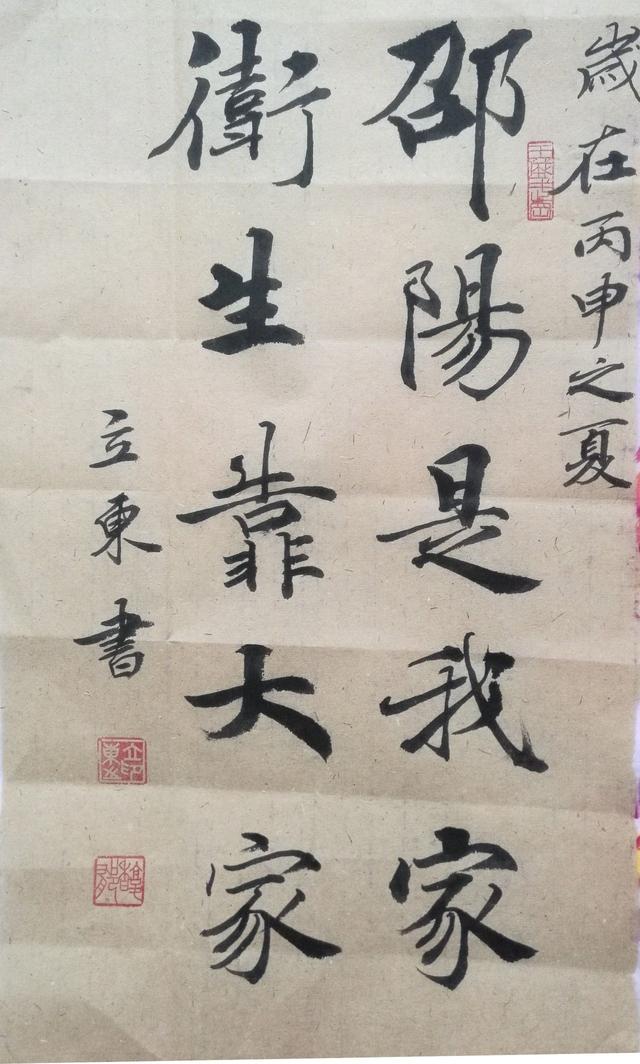 歲在丙申之夏
邵陽是我家
衛生靠大家
立東書